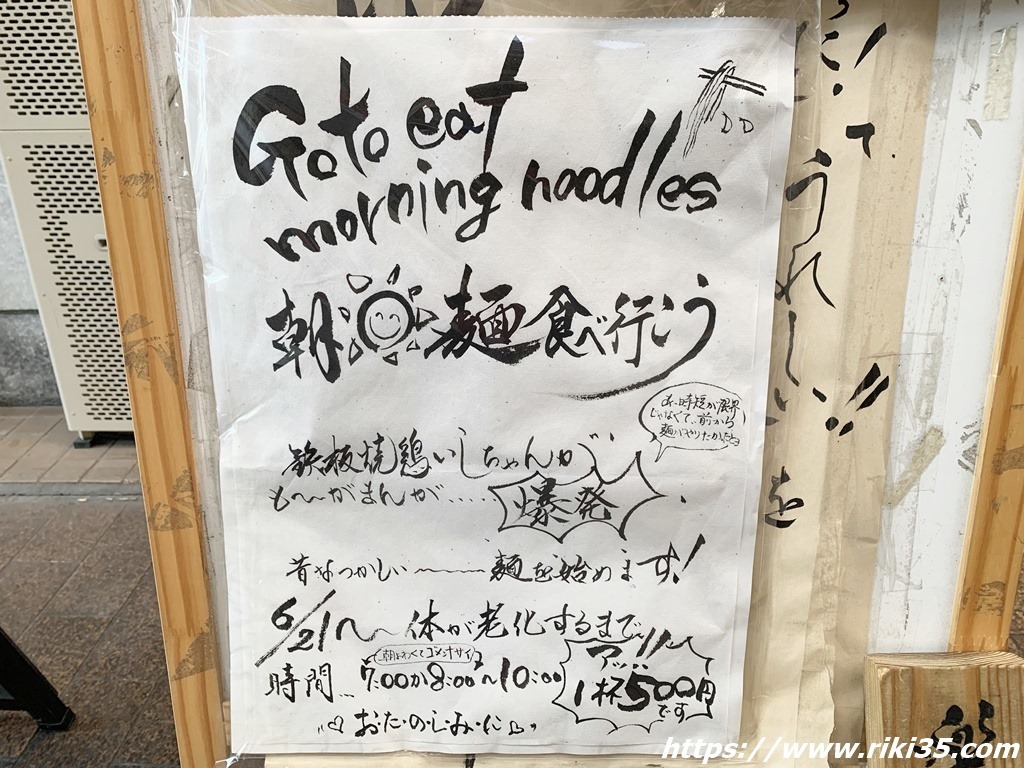 Go to eat
morning noodles
朝麺食べ行こう
あ、時短が限界
じゃなくて、前から
麺がやりたかった
鉄板焼鶏いしちゃんが
も〜〜がまんが.....
爆発
昔なつかしい〜〜〜麺を始めます!
6/21〜〜体が老化するまで
朝よわくてゴメンナサイ
時間...7:00か8:00〜10:00
アッ..
1杯500円
です
おたのしみに
うれしい!!
を
https://www.riki35.com